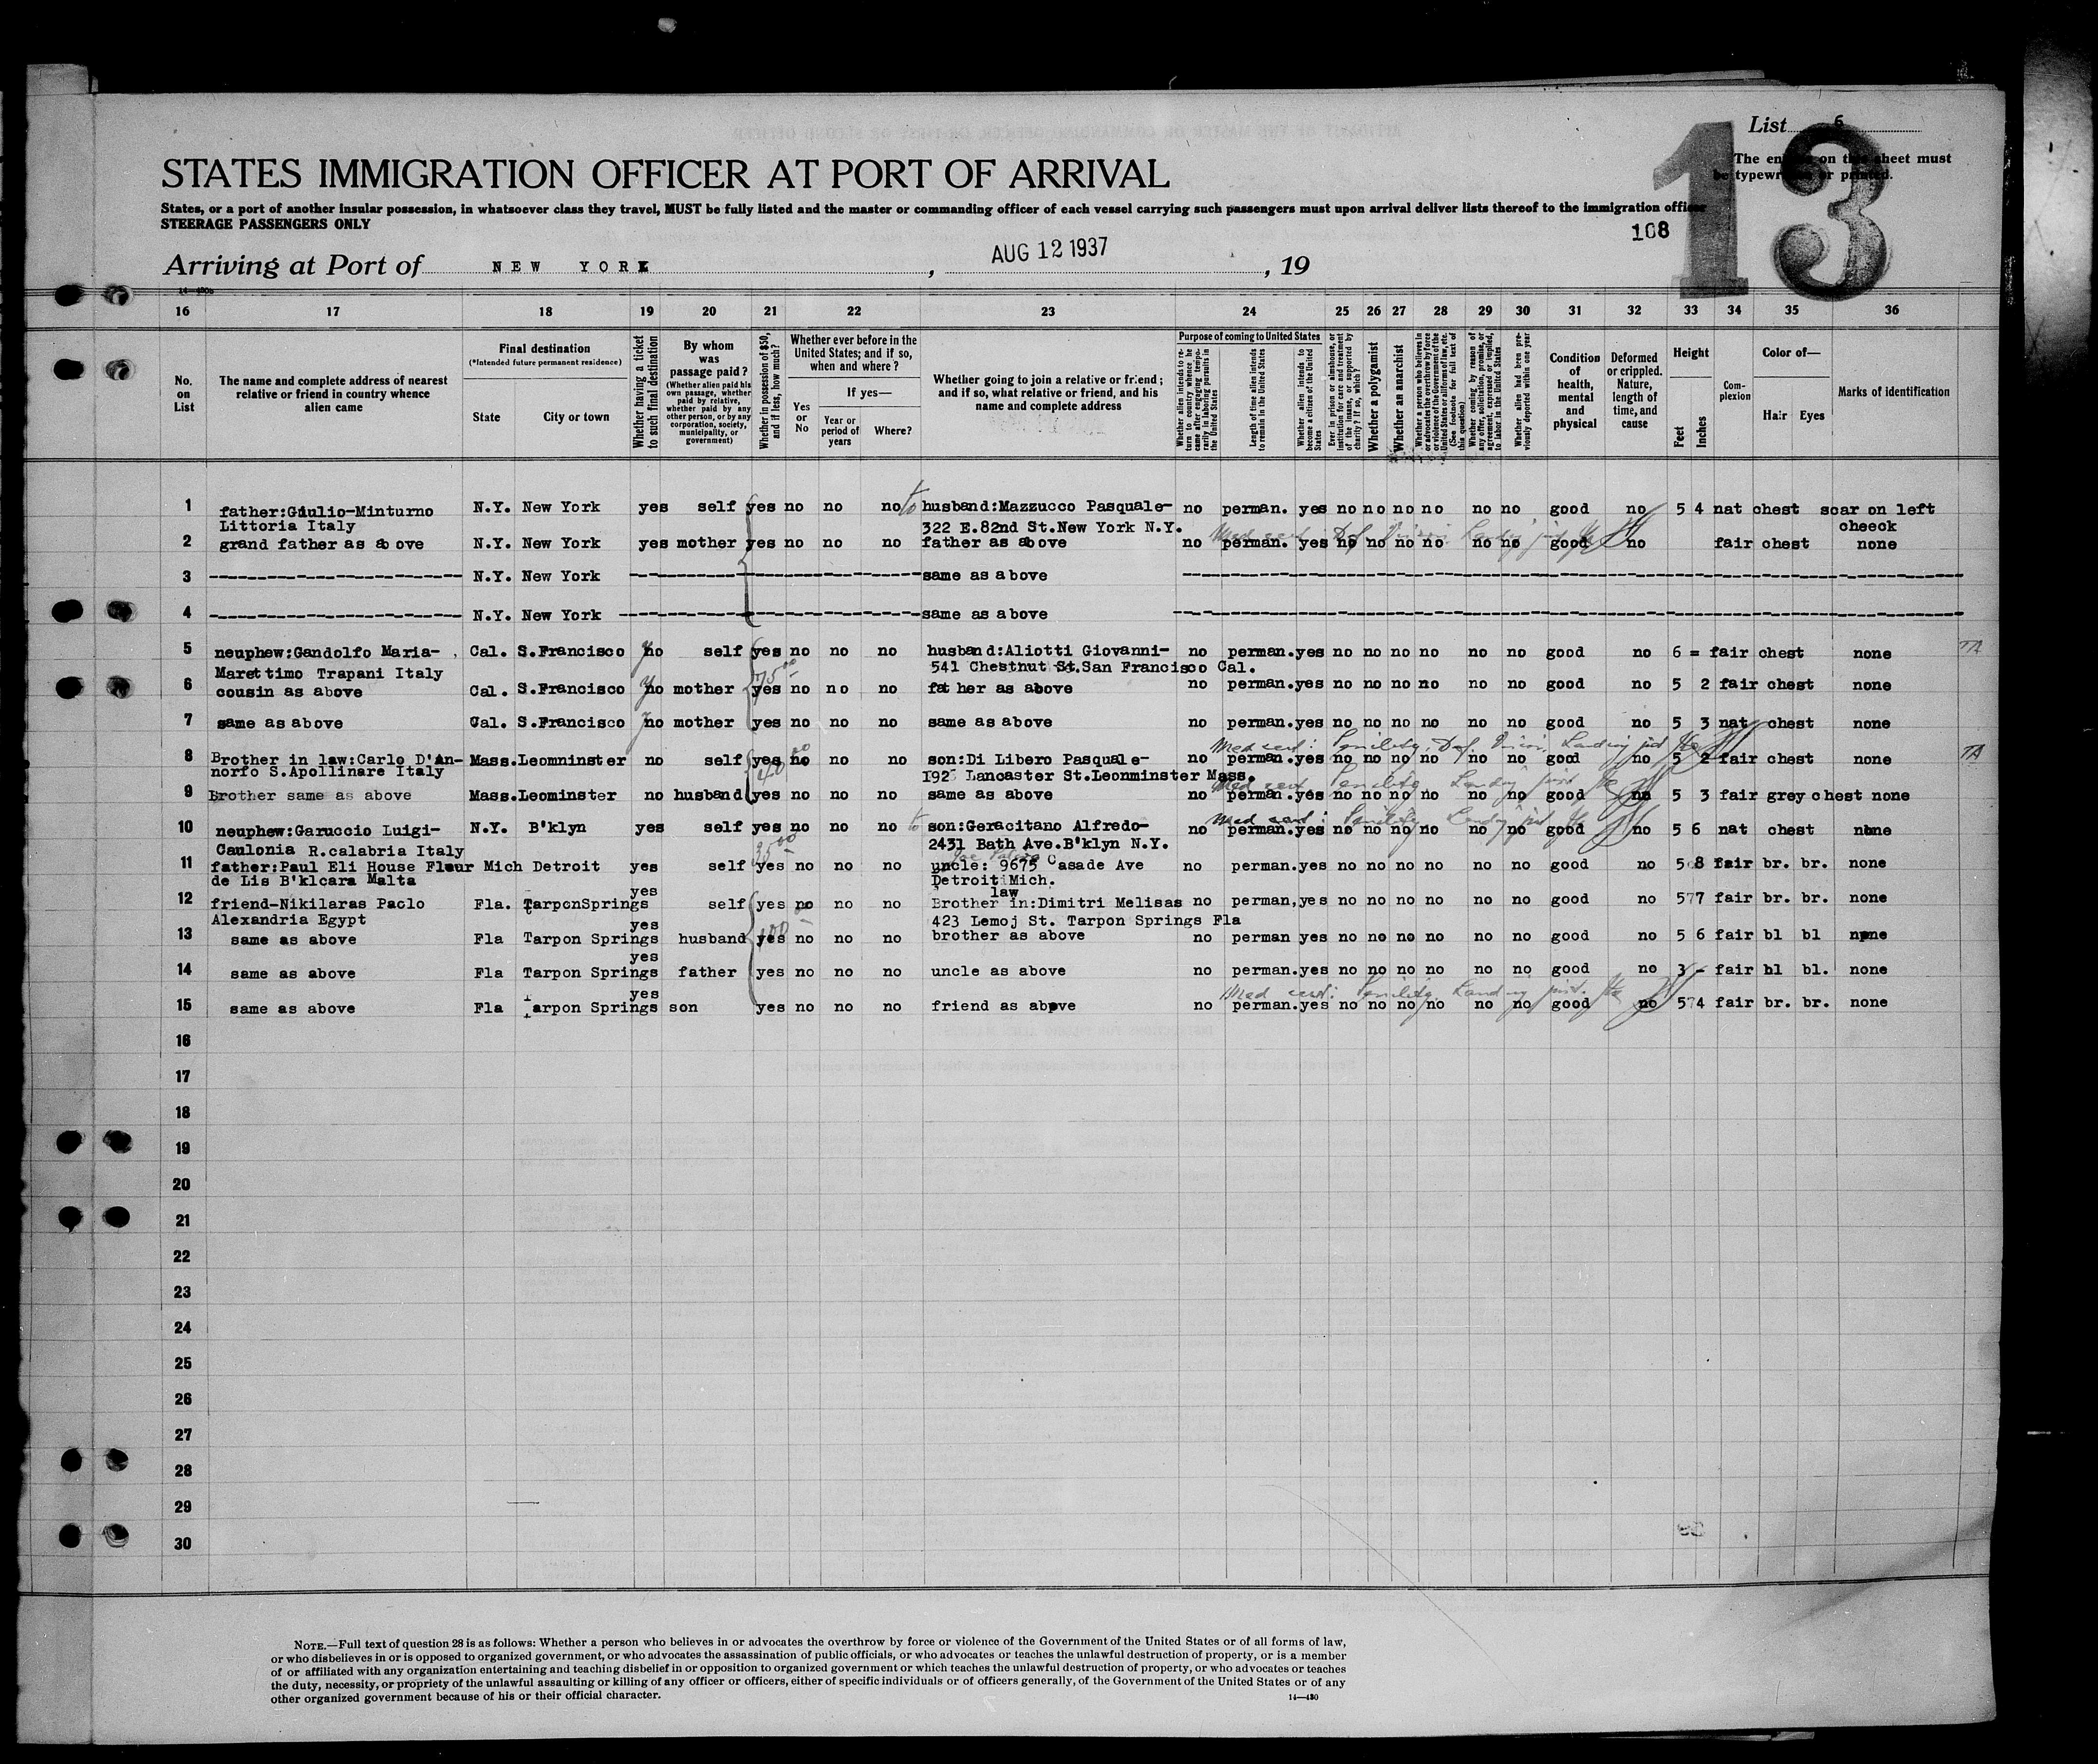 List 6
13
The entries on this sheet must
be typewritten or printed.
STATES IMMIGRATION OFFICER AT PORT OF ARRIVAL
States, or a port of another insular possession, in whatsoever class they travel, MUST be fully listed and the master or commanding officer of each vessel carrying such passengers must upon arrival deliver lists thereof to the immigration officer
STEERAGE PASSENGERS ONLY
108
Arriving at Port of NEW YORK, AUG 12 1937, 19
16 17 18 19 20 21 22 23 24 25 26 27 28 29 30 31 32 33 34 35 36
No. on List
The name and complete address of nearest relative or friend in country whence alien came
Final destination
(*Intended future permanent residence)
State
City or town
Whether having a ticket to such final destination
By whom was passage paid?
(Whether alien paid his own passage, whether paid by relative, whether paid by any other person, or by any corporation, society, municipality, or government)
Whether in possession of $50, and if less, how much?
Whether ever before in the United States; and if so, when and where?
Yes or No
If yes—
Year or period of years
Where?
Whether going to join a relative or friend; and if so, what relative or friend, and his name and complete address
Purpose of coming to United States
Whether alien intends to return to country whence he came after engaging temporarily in laboring pursuits in the United States
Length of time alien intends to remain in the United States
Whether alien intends to become a citizen of the United States
Ever in prison or almshouse, or institution for care and treatment of the insane, or supported by charity? If so, which?
Whether a polygamist
Whether an anarchist
Whether a person who believes in or advocates the overthrow by force or violence of the Government of the United States or all forms of law, etc. (See footnote for full text of this question)
Whether coming by reason of any offer, solicitation, promise, or agreement, expressed or implied, to labor in the United States
Whether alien had been previously deported within one year
Condition of health, mental and physical
Deformed or crippled. Nature, length of time, and cause
Height
Feet
Inches
Complexion
Color of—
Hair
Eyes
Marks of identification
1 father:Giulio-Minturno N.Y. New York yes self yes no no no to husband:Mazzucco Pasquale- no perman. yes no no no no no no good no 5 4 nat chest scar on left
Littoria Italy 322 E.82nd St.New York N.Y. cheeck
Med cert: Def. Vision Landing
2 grand father as above N.Y. New York yes mother yes no no no father as above no perman. yes no no no no no no good no fair chest none
3 N.Y. New York same as above
4 N.Y. New York same as above
5 neuphew:Gandolfo Maria- Cal. S.Francisco no self yes no no no husband:Aliotti Giovanni- no perman.yes no no no no no no good no 6 = fair chest none
Marettimo Trapani Italy 75 00 541 Chestnut St.San Francisco Cal.
6 cousin as above Cal. S.Francisco no mother yes no no no father as above no perman.yes no no no no no no good no 5 2 fair chest none
7 same as above Cal. S.Francisco no mother yes no no no same as above no perman.yes no no no no no no good no 5 3 nat chest none
Med cert: Senility, Def. Vision, Landing
8 Brother in law:Carlo D'An- Mass.Leomninster no self yes no no no son:Di Libero Pasquale- no perman.yes no no no no no no good no 5 2 fair chest none
norfo S.Apollinare Italy 192 Lancaster St.Leonminster Mass.
Med cert Senility Landing
9 Brother same as above Mass.Leominster no husband yes no no no same as above no perman.yes no no no no no no good no 5 3 fair grey chest none
Med cert: Senility Landing
10 neuphew:Garuccio Luigi- N.Y. B'klyn yes self yes no no no to son:Geracitano Alfredo- no perman.yes no no no no no no good no 5 6 nat chest none
Caulonia R.calabria Italy 35 00 2431 Bath Ave.B'klyn N.Y.
11 father:Paul Eli House Fleur Mich Detroit yes self yes no no no uncle: 9675 Casade Ave no perman.yes no no no no no no good no 5 8 fair br. br. none
de Lis B'klcara Malta Detroit Mich.
yes law
12 friend-Nikilaras Paolo Fla. TarponSprings self yes no no no Brother in:Dimitri Melisas no perman,yes no no no no no no good no 577 fair br. br. none
Alexandria Egypt yes 100 423 Lemoj St. Tarpon Springs Fla
13 same as above Fla Tarpon Springs husband yes no no no brother as above no perman yes no no no no no no good no 5 6 fair bl bl none
yes
14 same as above Fla Tarpon Springs father yes no no no uncle as above no perman.yes no no no no no no good no 3 - fair bl bl. none
yes Med cert: Senility Landing
15 same as above Fla Tarpon Springs son yes no no no friend as above no perman.yes no no no no no no good no 574 fair br. br. none
16
17
18
19
20
21
22
23
24
25
26
27
28
29
30
NOTE.—Full text of question 28 is as follows: Whether a person who believes in or advocates the overthrow by force or violence of the Government of the United States or of all forms of law,
or who disbelieves in or is opposed to organized government, or who advocates the assassination of public officials, or who advocates or teaches the unlawful destruction of property, or is a member
of or affiliated with any organization entertaining and teaching disbelief in or opposition to organized government or which teaches the unlawful destruction of property, or who advocates or teaches
the duty, necessity, or propriety of the unlawful assaulting or killing of any officer or officers, either of specific individuals or of officers generally, of the Government of the United States or of any
other organized government because of his or their official character.
14—430